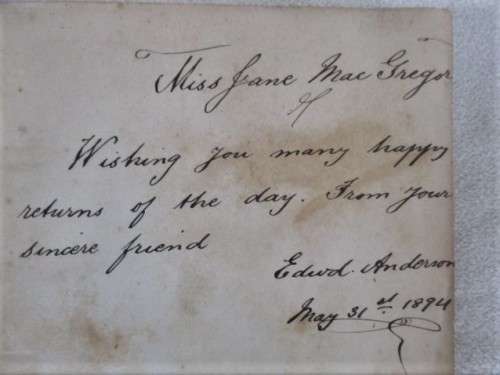 Miss Jane Mac Gregor
Wishing you many happy
returns of the day. From your
sincere friend
Edwd. Anderson
May 31st 1894